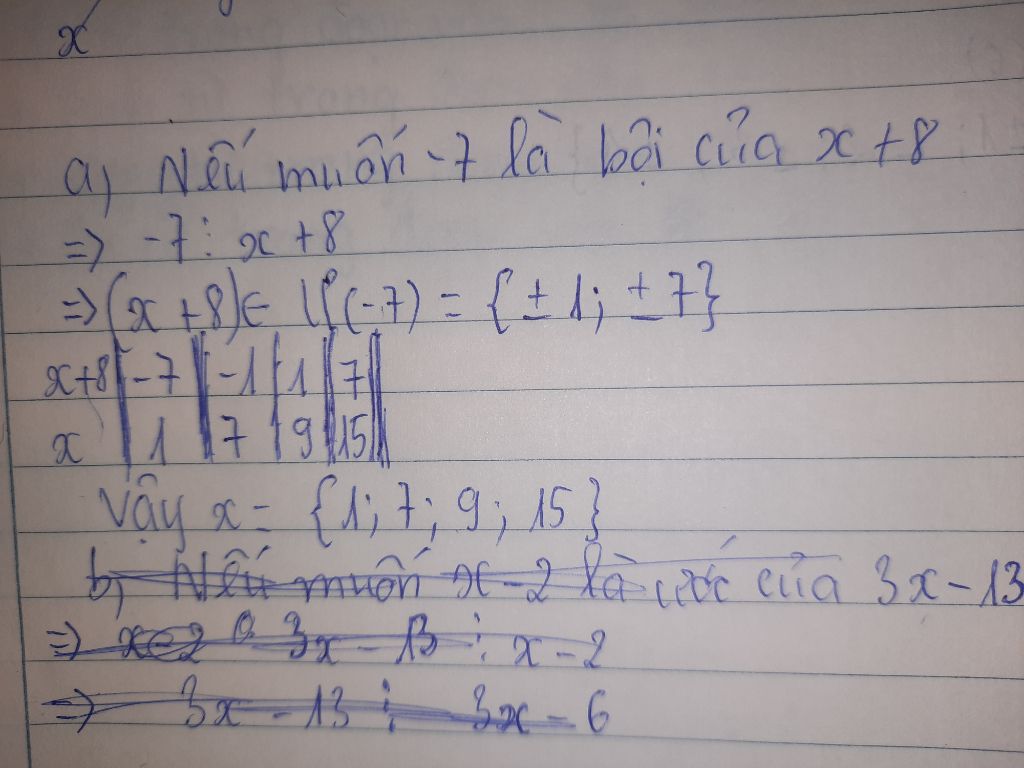 x
a) Nếu muốn -7 là bội của x+8
=> -7 ⋮ x+8
=> (x+8) ∈ Ư(-7) = {±1; ±7}
x+8 | -7 | -1 | 1 | 7
x | 1 | 7 | 9 | 15
Vậy x = {1; 7; 9; 15}
b) Nếu muốn x-2 là ước của 3x-13
=> x-2 3x-13 ⋮ x-2
=> 3x-13 ⋮ 3x-6